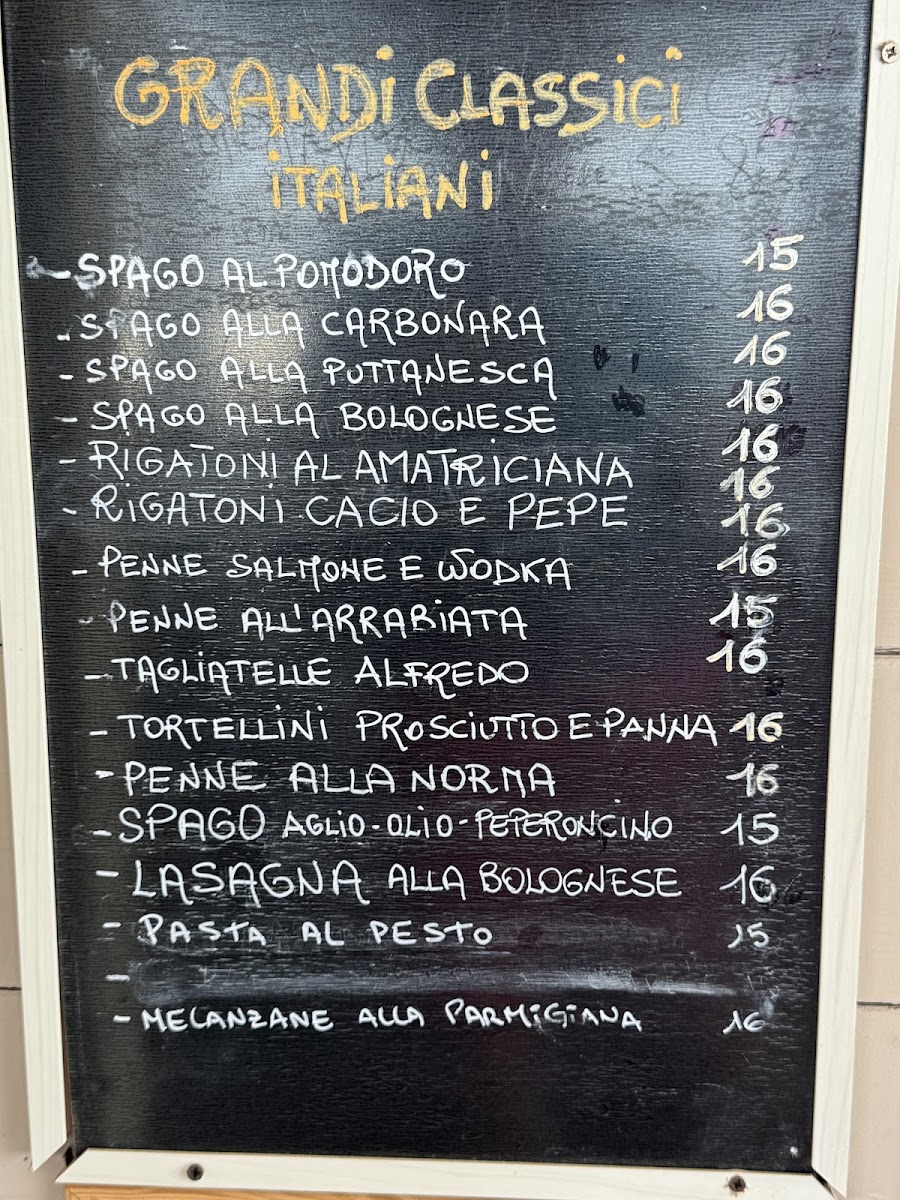 GRANDi CLASSiCi
iTALiANi
- SPAGO AL POMODORO 15
- SPAGO ALLA CARBONARA 16
- SPAGO ALLA PUTTANESCA 16
- SPAGO ALLA BOLOGNESE 16
- RIGATONI AL AMATRICIANA 16
16
- RIGATONI CACIO E PEPE 16
- PENNE SALMONE E WODKA 16
- PENNE ALL'ARRABIATA 15
- TAGLIATELLE ALFREDO 16
- TORTELLINI PROSCIUTTO E PANNA 16
- PENNE ALLA NORMA 16
- SPAGO AGLIO-OLIO-PEPERONCINO 15
- LASAGNA ALLA BOLOGNESE 16
- PASTA AL PESTO 15
-
- MELANZANE ALLA PARMIGIANA 16